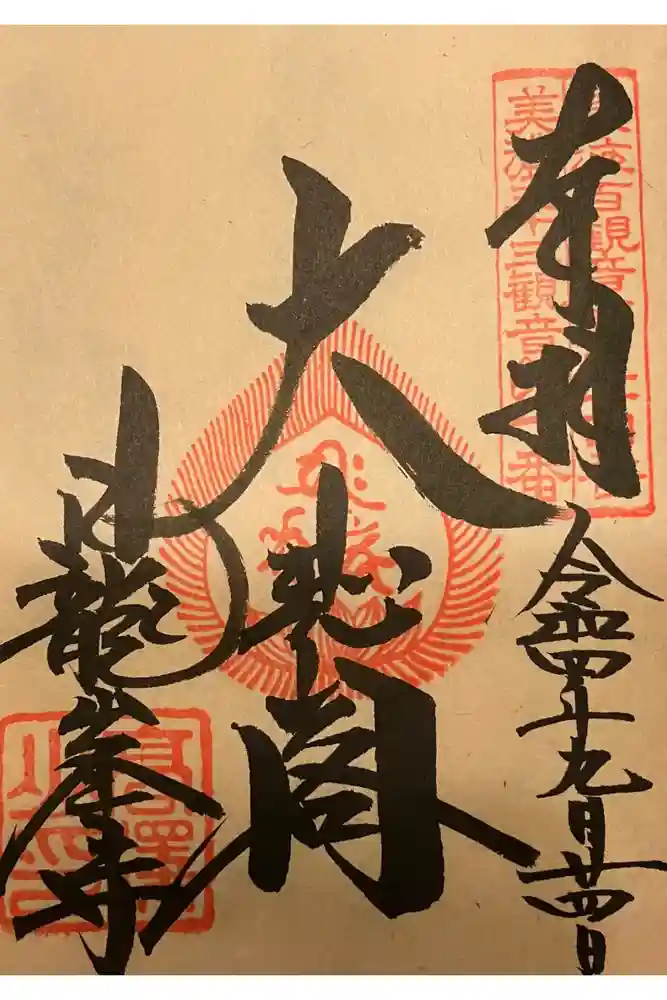 奉拝
令和四年九月廿四日
大悲閣
日龍峯寺
美濃三十三観音
番